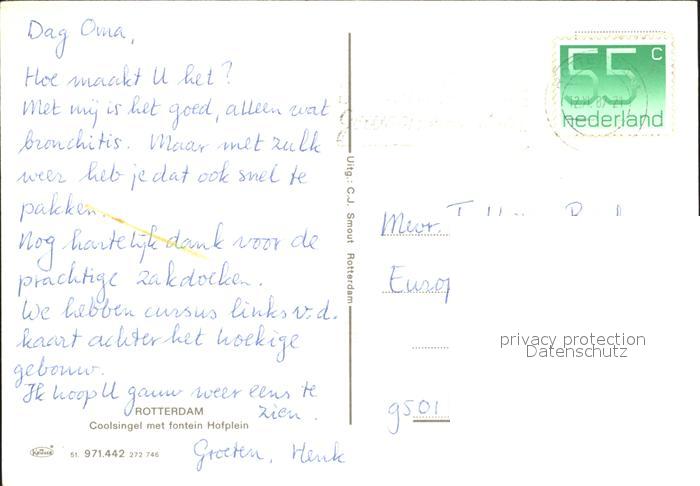 Dag Oma,
Hoe maakt U het?
Met mij is het goed, alleen wat
bronchitis. Maar met zulk
weer heb je dat ook snel te
pakken.
Nog hartelijk dank voor de
prachtige zakdoeken.
We hebben cursus links v.d.
kaart achter het hoekige
gebouw.
Ik hoop U gauw weer eens te
zien.
Groeten, Henk
ROTTERDAM
Coolsingel met fontein Hofplein
51. 971.442 272 746
Uitg.: C.J. Smout Rotterdam
55 c
nederland
Mevr.
Europ
9501
privacy protection
Datenschutz